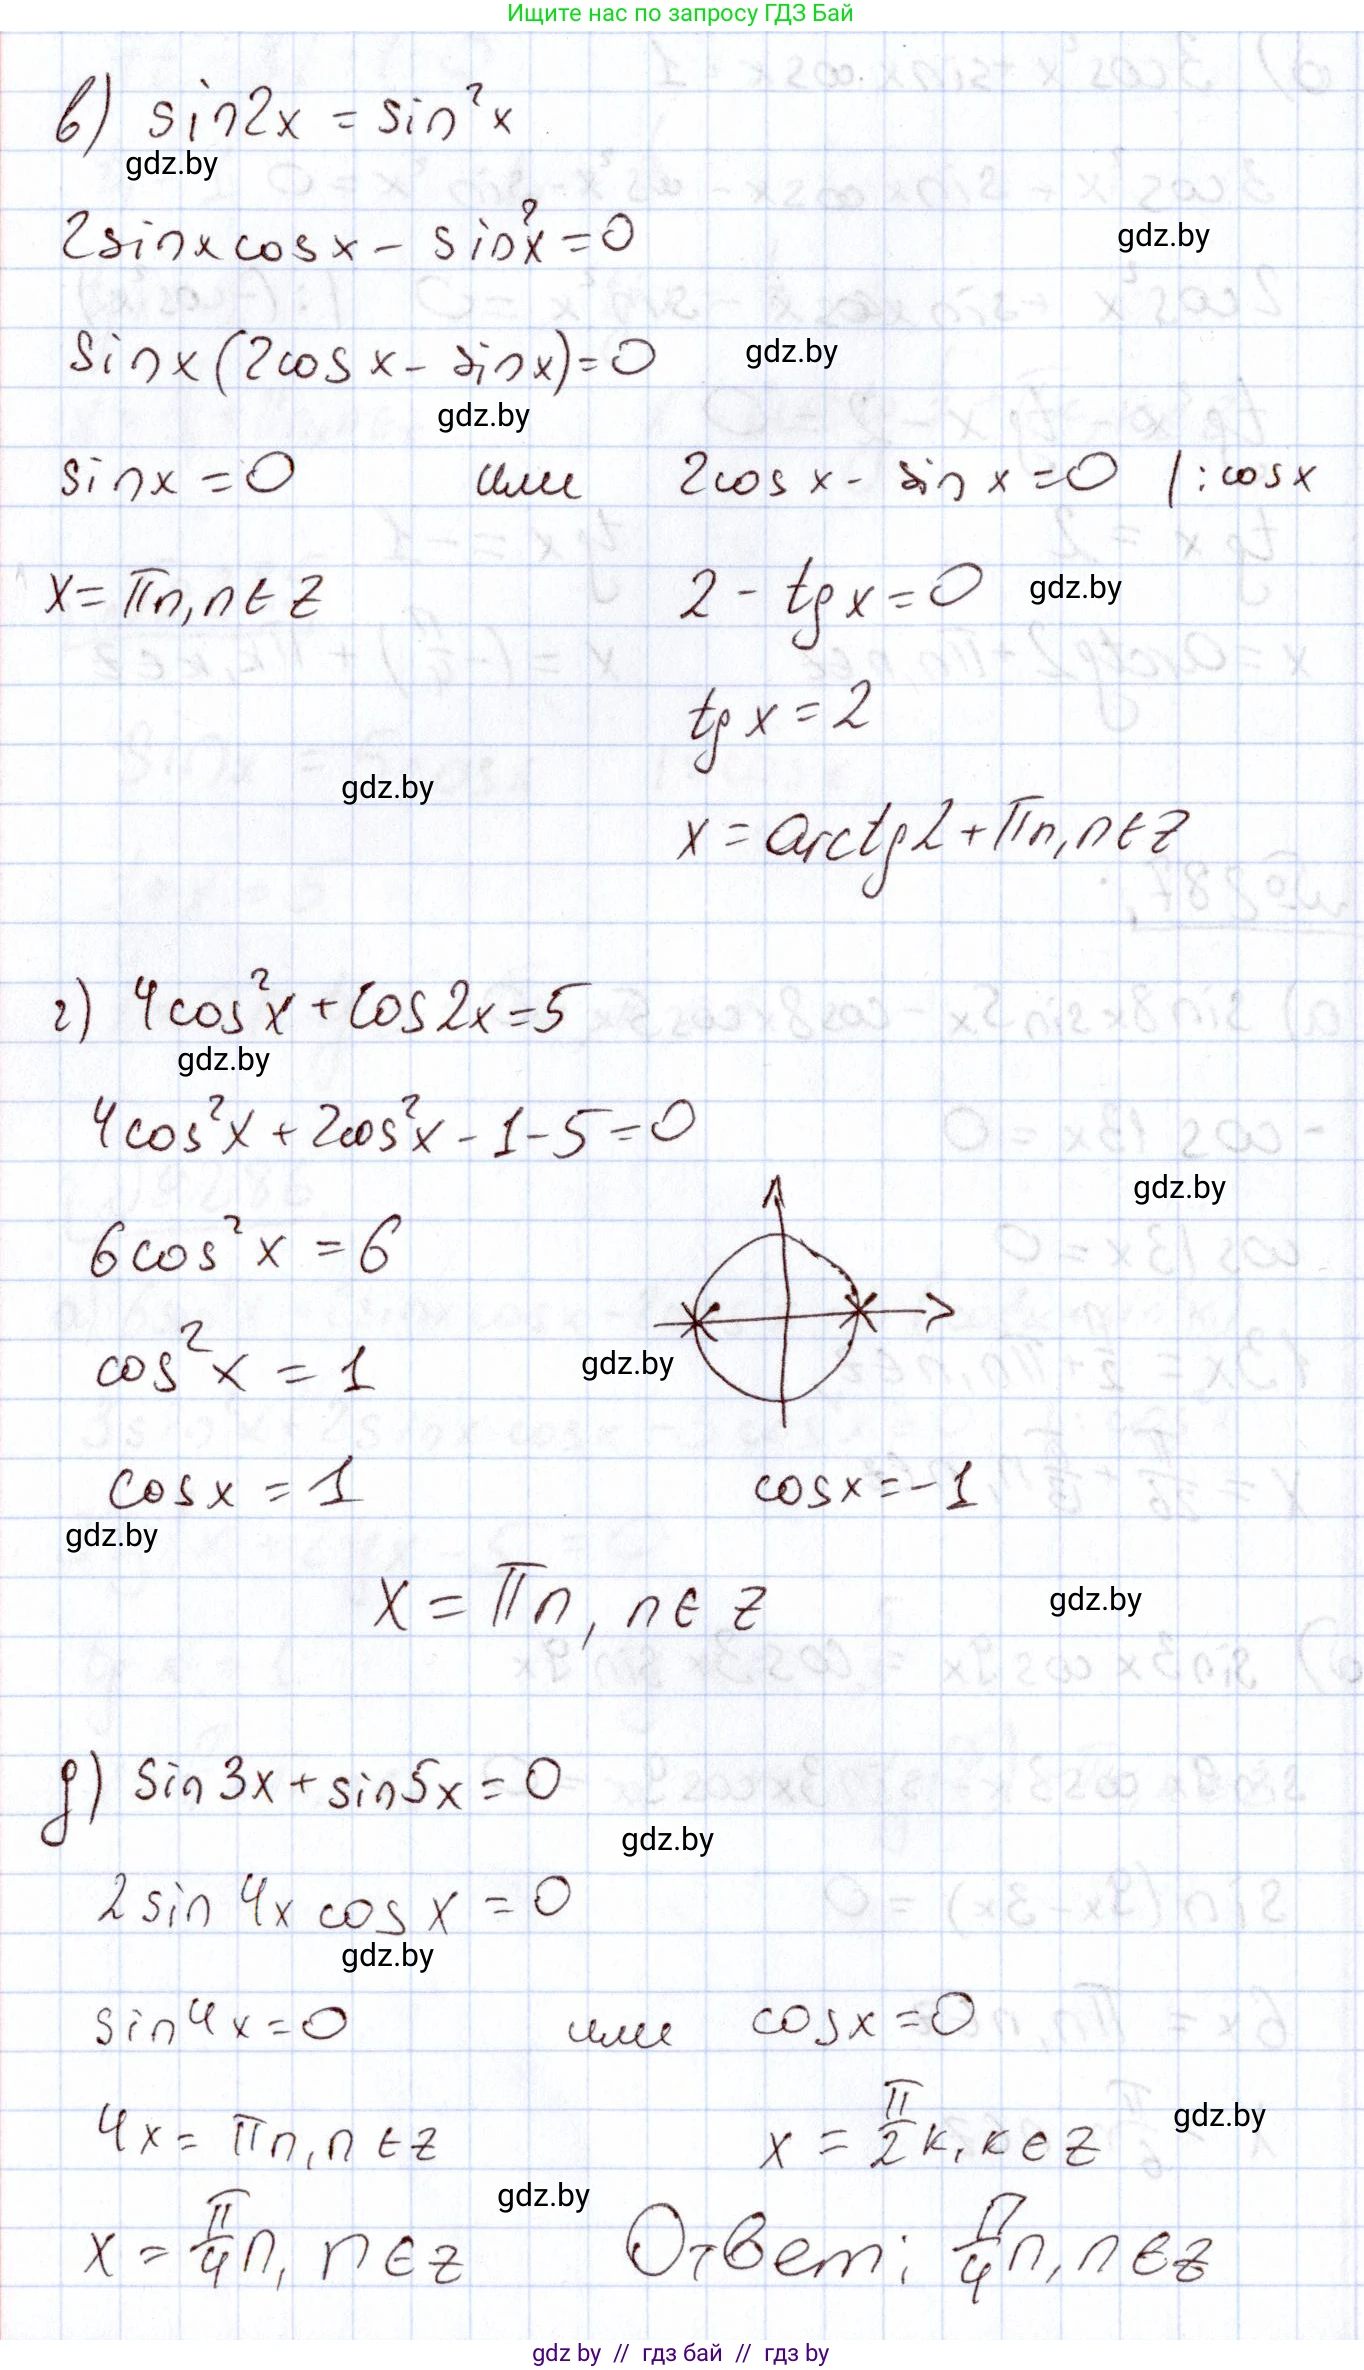 Ищите нас по запросу ГДЗ Бай
в) sin2x = sin²x
gdz.by
2sinxcosx - sin²x = 0
gdz.by
sinx(2cosx - sinx) = 0
gdz.by
gdz.by
sinx = 0 или 2cosx - sinx = 0 | : cosx
x = πn, n∈Z 2 - tgx = 0
gdz.by
tgx = 2
gdz.by
x = arctg2 + πn, n∈Z
г) 4cos²x + cos2x = 5
gdz.by
4cos²x + 2cos²x - 1 - 5 = 0
gdz.by
6cos²x = 6
cos²x = 1
gdz.by
cosx = 1 cosx = -1
gdz.by
x = πn, n∈Z
gdz.by
д) sin3x + sin5x = 0
gdz.by
2sin4xcosx = 0
gdz.by
sin4x = 0 или cosx = 0
4x = πn, n∈Z x = π/2 k, k∈Z
gdz.by
gdz.by
x = π/4 n, n∈Z Ответ: π/4 n, n∈Z
gdz.by // гдз бай // гдз by